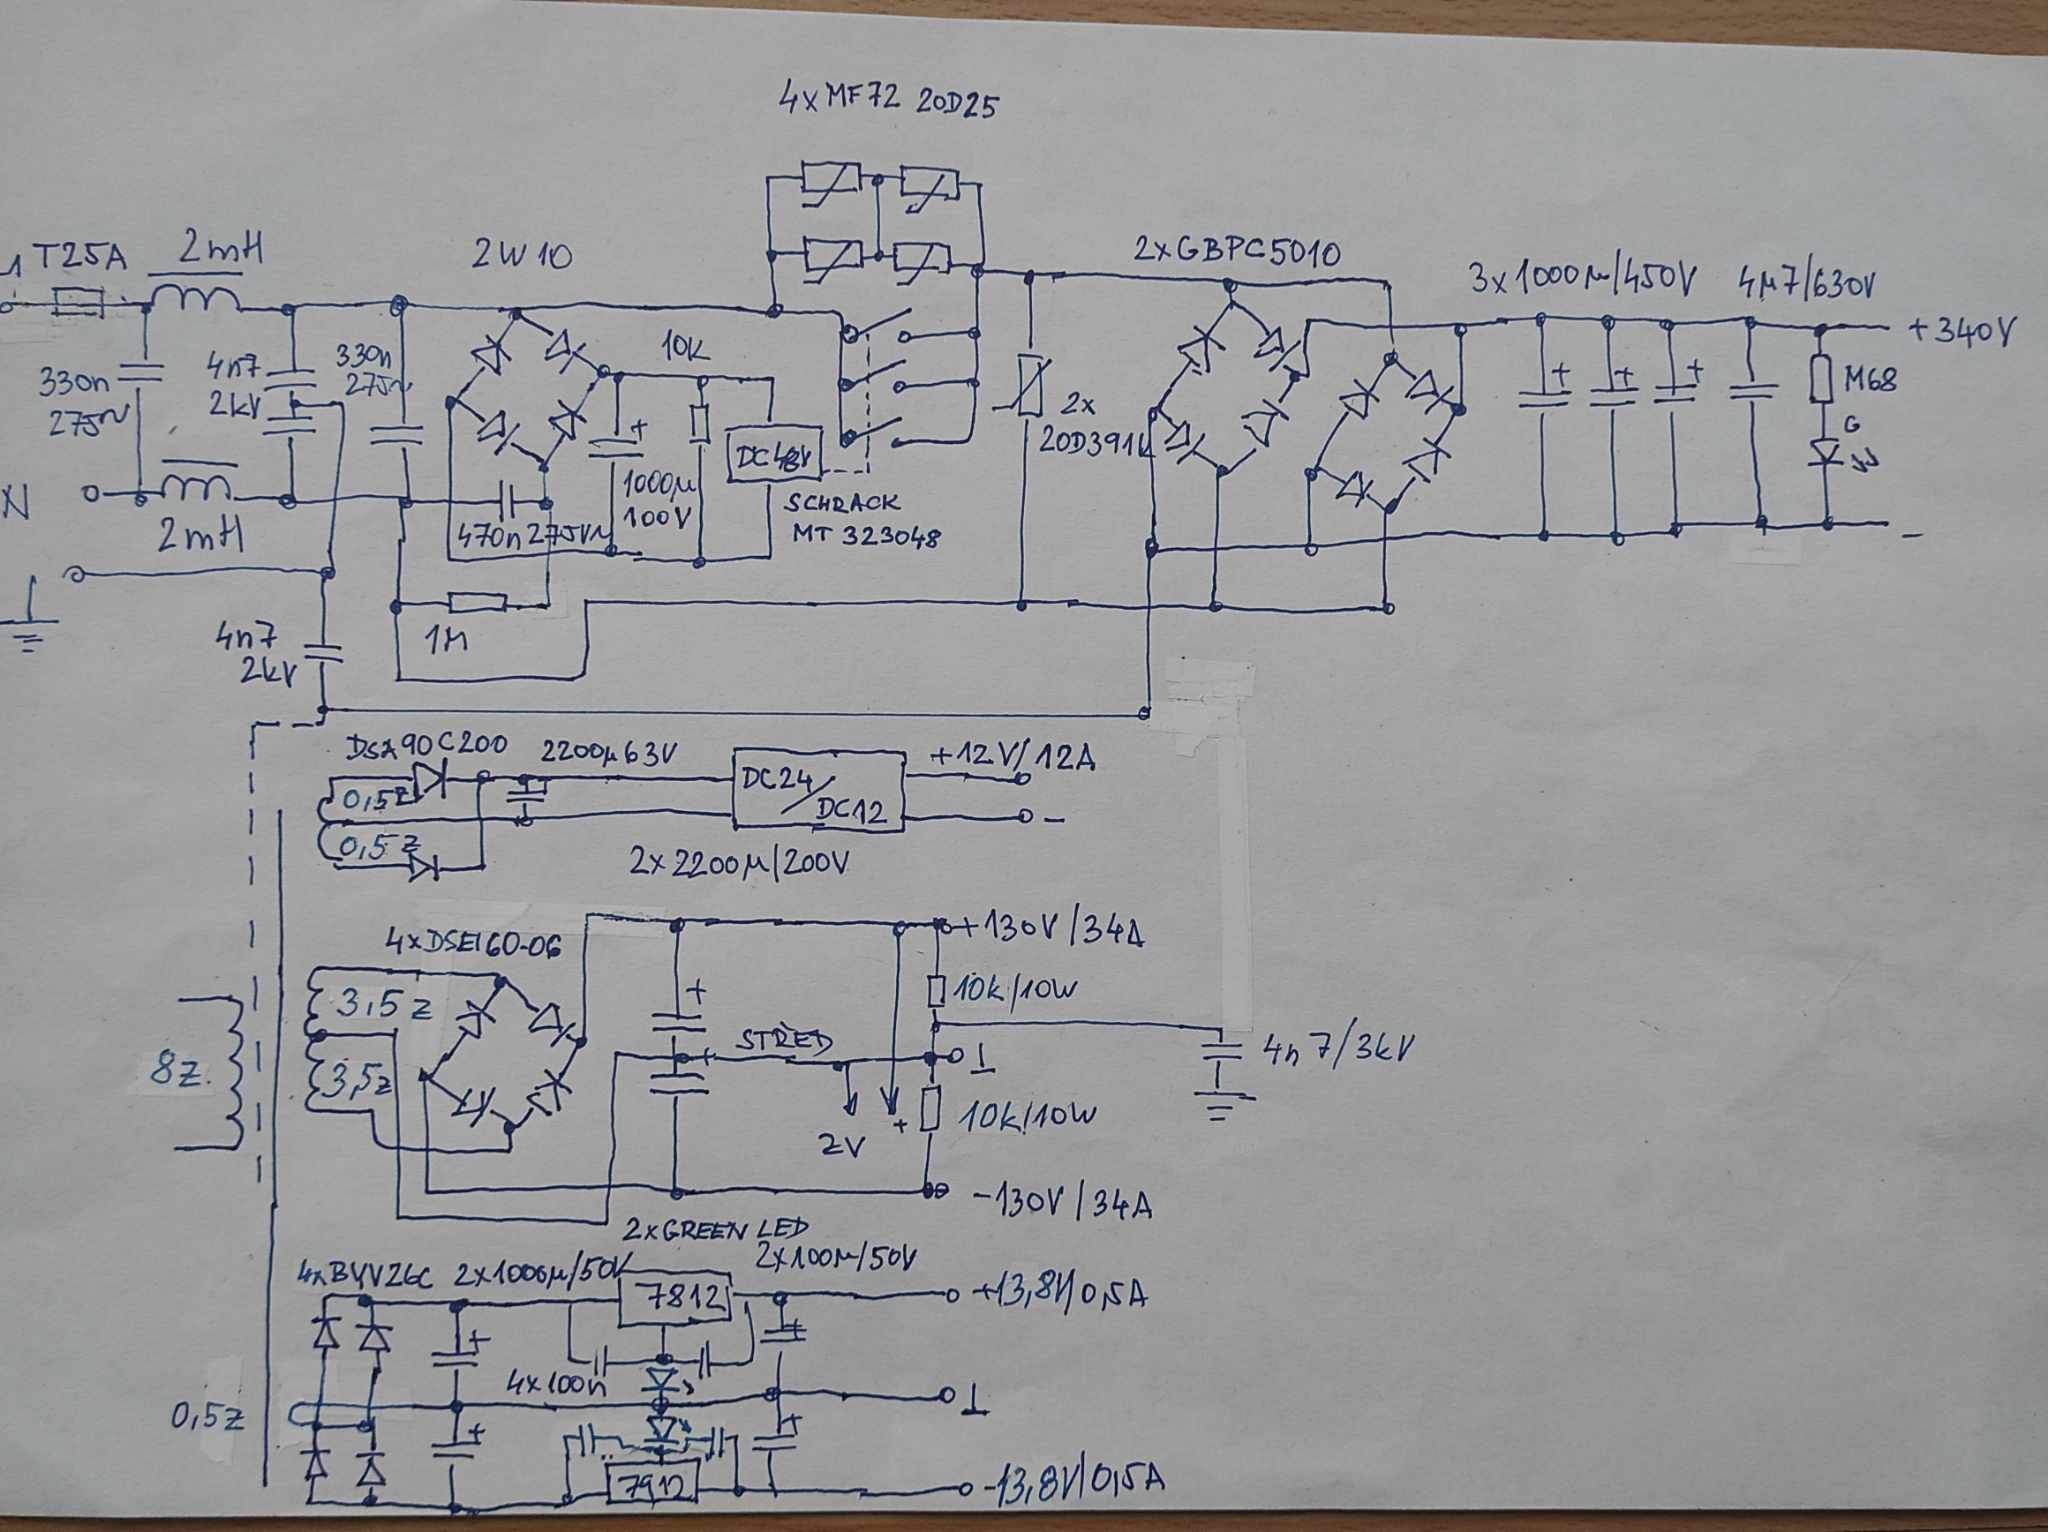 4xMF72 20D25
1
T25A
2mH
2W10
2xGBPC5010
3x1000µ/450V
4µ7/630V
+340V
10K
330n
275~
4n7
2kV
330n
275~
DC48V
2x
20D391K
M68
G
1000µ
100V
SCHRACK
MT 323048
N
2mH
470n 275V~
-
1M
4n7
2kV
DSA90C200
2200µ63V
+12V/12A
0,5z
DC24
/
DC12
-
0,5z
2x2200µ/200V
4xDSEI60-06
+130V/34A
3,5z
10k/10W
STRED
4n7/3kV
8z.
3,5z
10k/10W
2V
-130V/34A
2xGREEN LED
4xBYV26C
2x1000µ/50V
2x100µ/50V
7812
+13,8V/0,5A
4x100n
0,5z
7912
-13,8V/0,5A